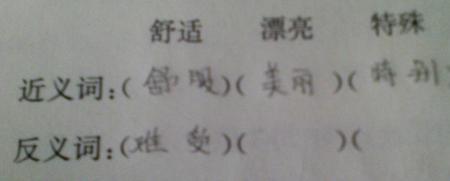 舒适 漂亮 特殊
近义词:(舒服)(美丽)(特别
反义词:(难受)( )(